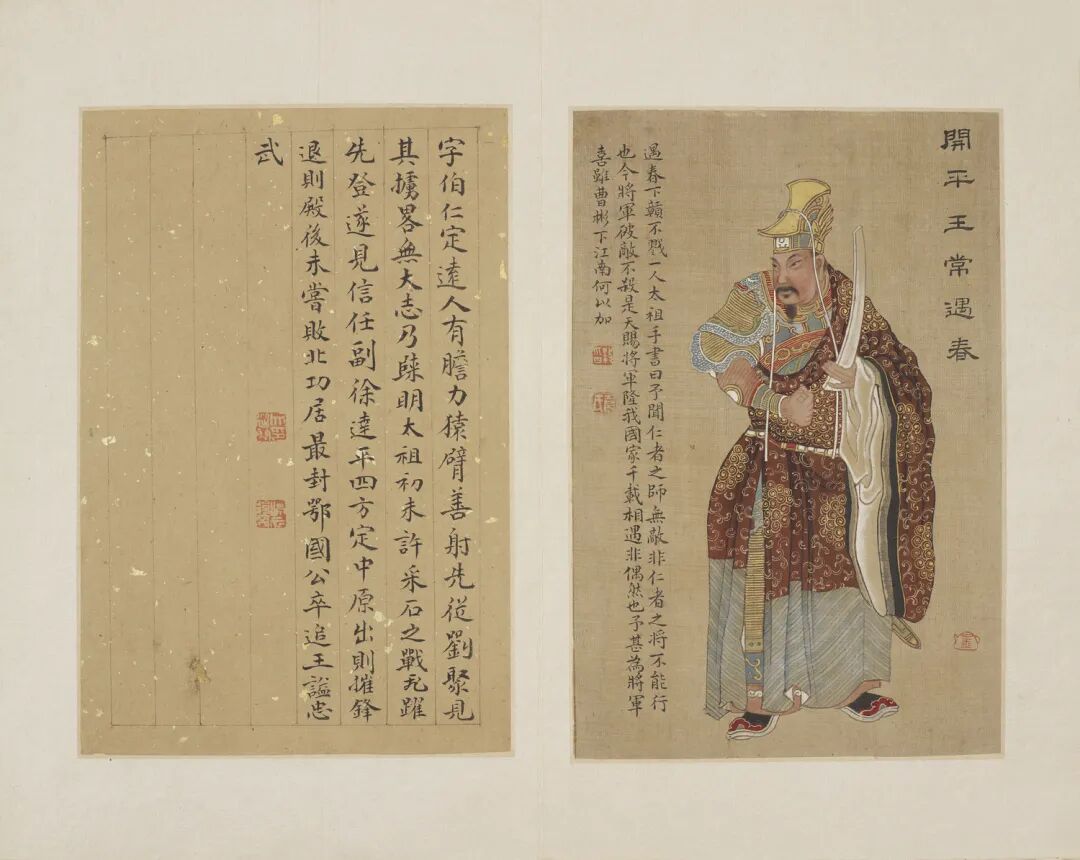 開平王常遇春
遇春下贛不戮一人太祖手書曰予聞仁者之師無敵非仁者之將不能行
也今將軍破敵不殺是天賜將軍隆我國家千載相遇非偶然也予甚為將軍
喜雖曹彬下江南何以加
字伯仁定遠人有膽力猿臂善射先從劉聚見
其擄畧無大志乃隸明太祖初未許采石之戰躍
先登遂見信任副徐達平四方定中原出則摧鋒
退則殿後未嘗敗北功居最封鄂國公卒追王諡忠
武